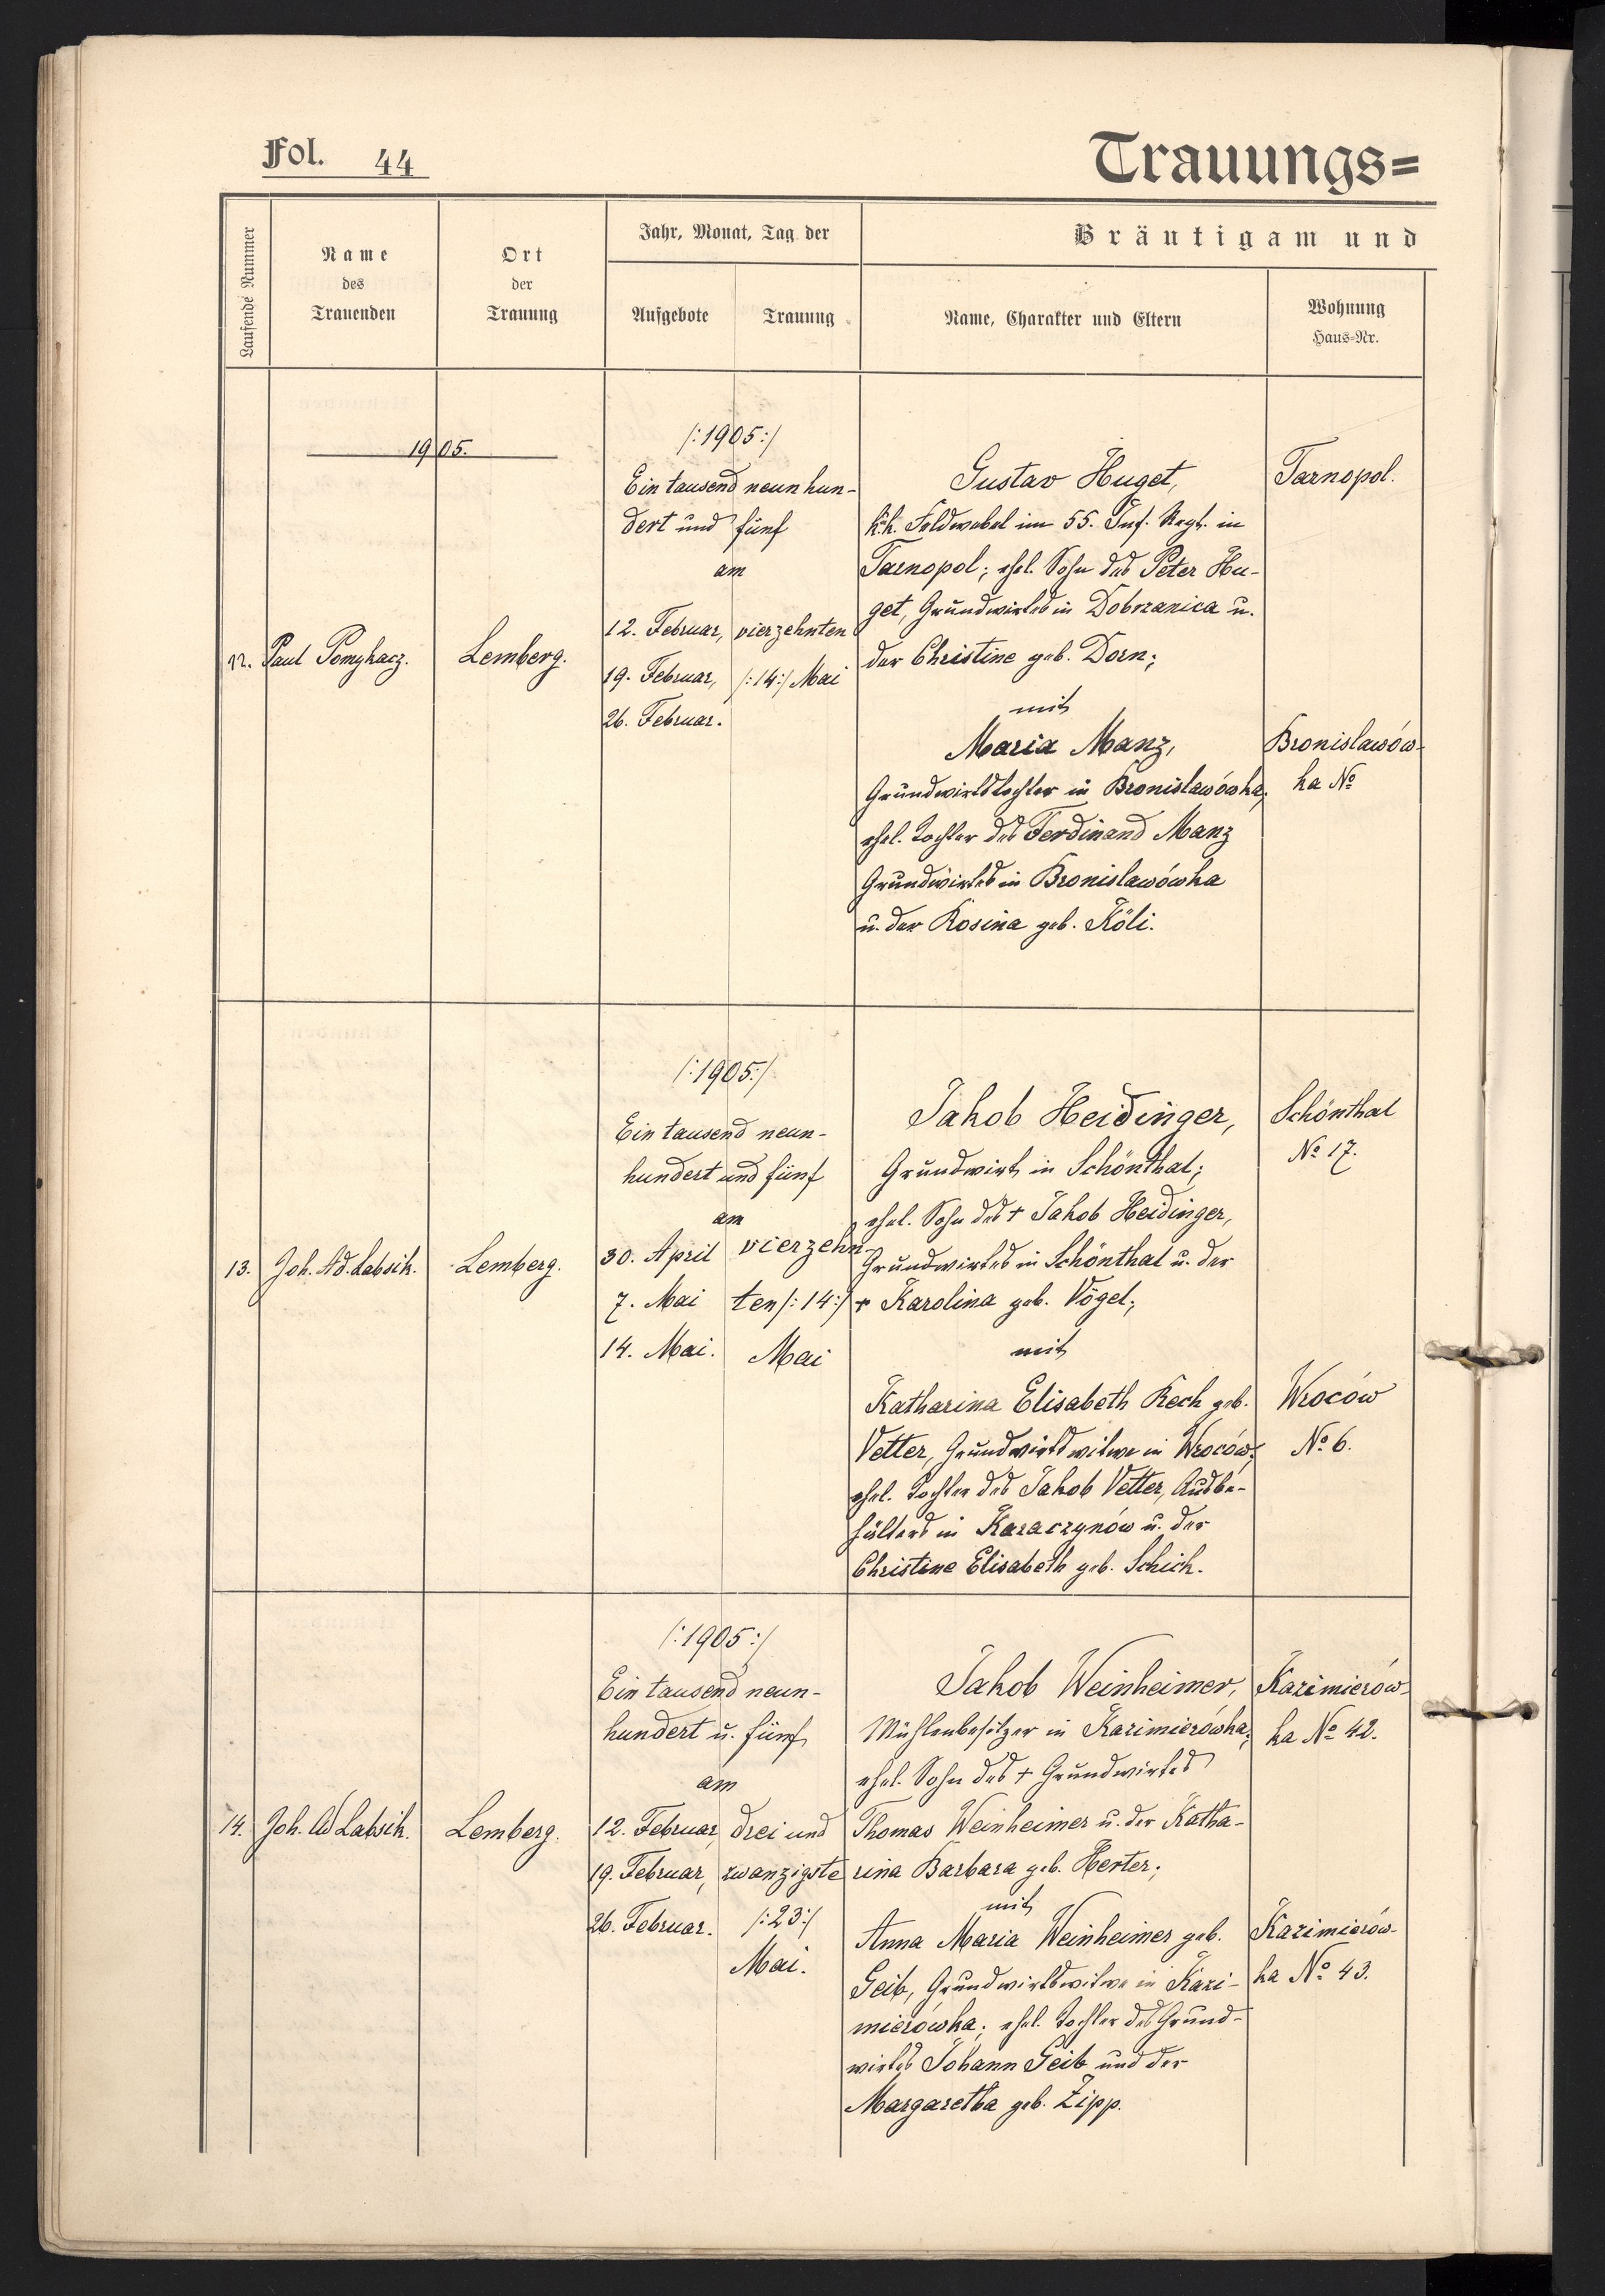 Fol. 44
Trauungs=
Laufende Nummer
Name
des
Trauenden
Ort
der
Trauung
Jahr, Monat, Tag der
Aufgebote
Trauung
Bräutigam und
Name, Charakter und Eltern
Wohnung
Haus-Nr.
1905.
12.
Paul Pomykacz.
Lemberg.
/:1905:/
Ein tausend neun hun-
dert und fünf
am
12. Februar,
19. Februar,
26. Februar.
vierzehnten
/:14:/ Mai
Gustav Huget,
k.k. Feldwebel im 55. Inf. Regt. in
Tarnopol; ehel. Sohn des Peter Hu-
get, Grundwirtes in Dobrzanica u.
der Christine geb. Dorn;
mit
Maria Manz,
Grundwirtstochter in Bronislawówka;
ehel. Tochter des Ferdinand Manz
Grundwirtes in Bronislawówka
u. der Rosina geb. Köli.
Tarnopol.
Bronislawów-
ka No
13.
Joh. Ad. Labsik.
Lemberg.
/:1905:/
Ein tausend neun-
hundert und fünf
am
30. April
7. Mai
14. Mai.
vierzehn-
ten /:14:/
Mai
Jakob Heidinger,
Grundwirt in Schönthal;
ehel. Sohn des + Jakob Heidinger,
Grundwirtes in Schönthal u. der
+ Karolina geb. Vogel;
mit
Katharina Elisabeth Rech geb.
Vetter, Grundwirtswitwe in Wroców;
ehel. Tochter des Jakob Vetter, Ausbe-
hälters in Karaczynów u. der
Christine Elisabeth geb. Schick.
Schönthal
No 17.
Wroców
No 6.
14.
Joh. Ad Labsik.
Lemberg.
/:1905:/
Ein tausend neun-
hundert u. fünf
am
12. Februar,
19. Februar,
26. Februar.
drei und
zwanzigste
/:23:/
Mai.
Jakob Weinheimer,
Mühlenbesitzer in Kazimierówka;
ehel. Sohn des + Grundwirtes
Thomas Weinheimer u. der Katha-
rina Barbara geb. Herter;
mit
Anna Maria Weinheimer geb.
Geib, Grundwirtswitwe in Kazi-
mierówka; ehel. Tochter des Grund-
wirtes Johann Geib und der
Margaretha geb. Zipp.
Kazimierów-
ka No 42.
Kazimierów-
ka No 43.